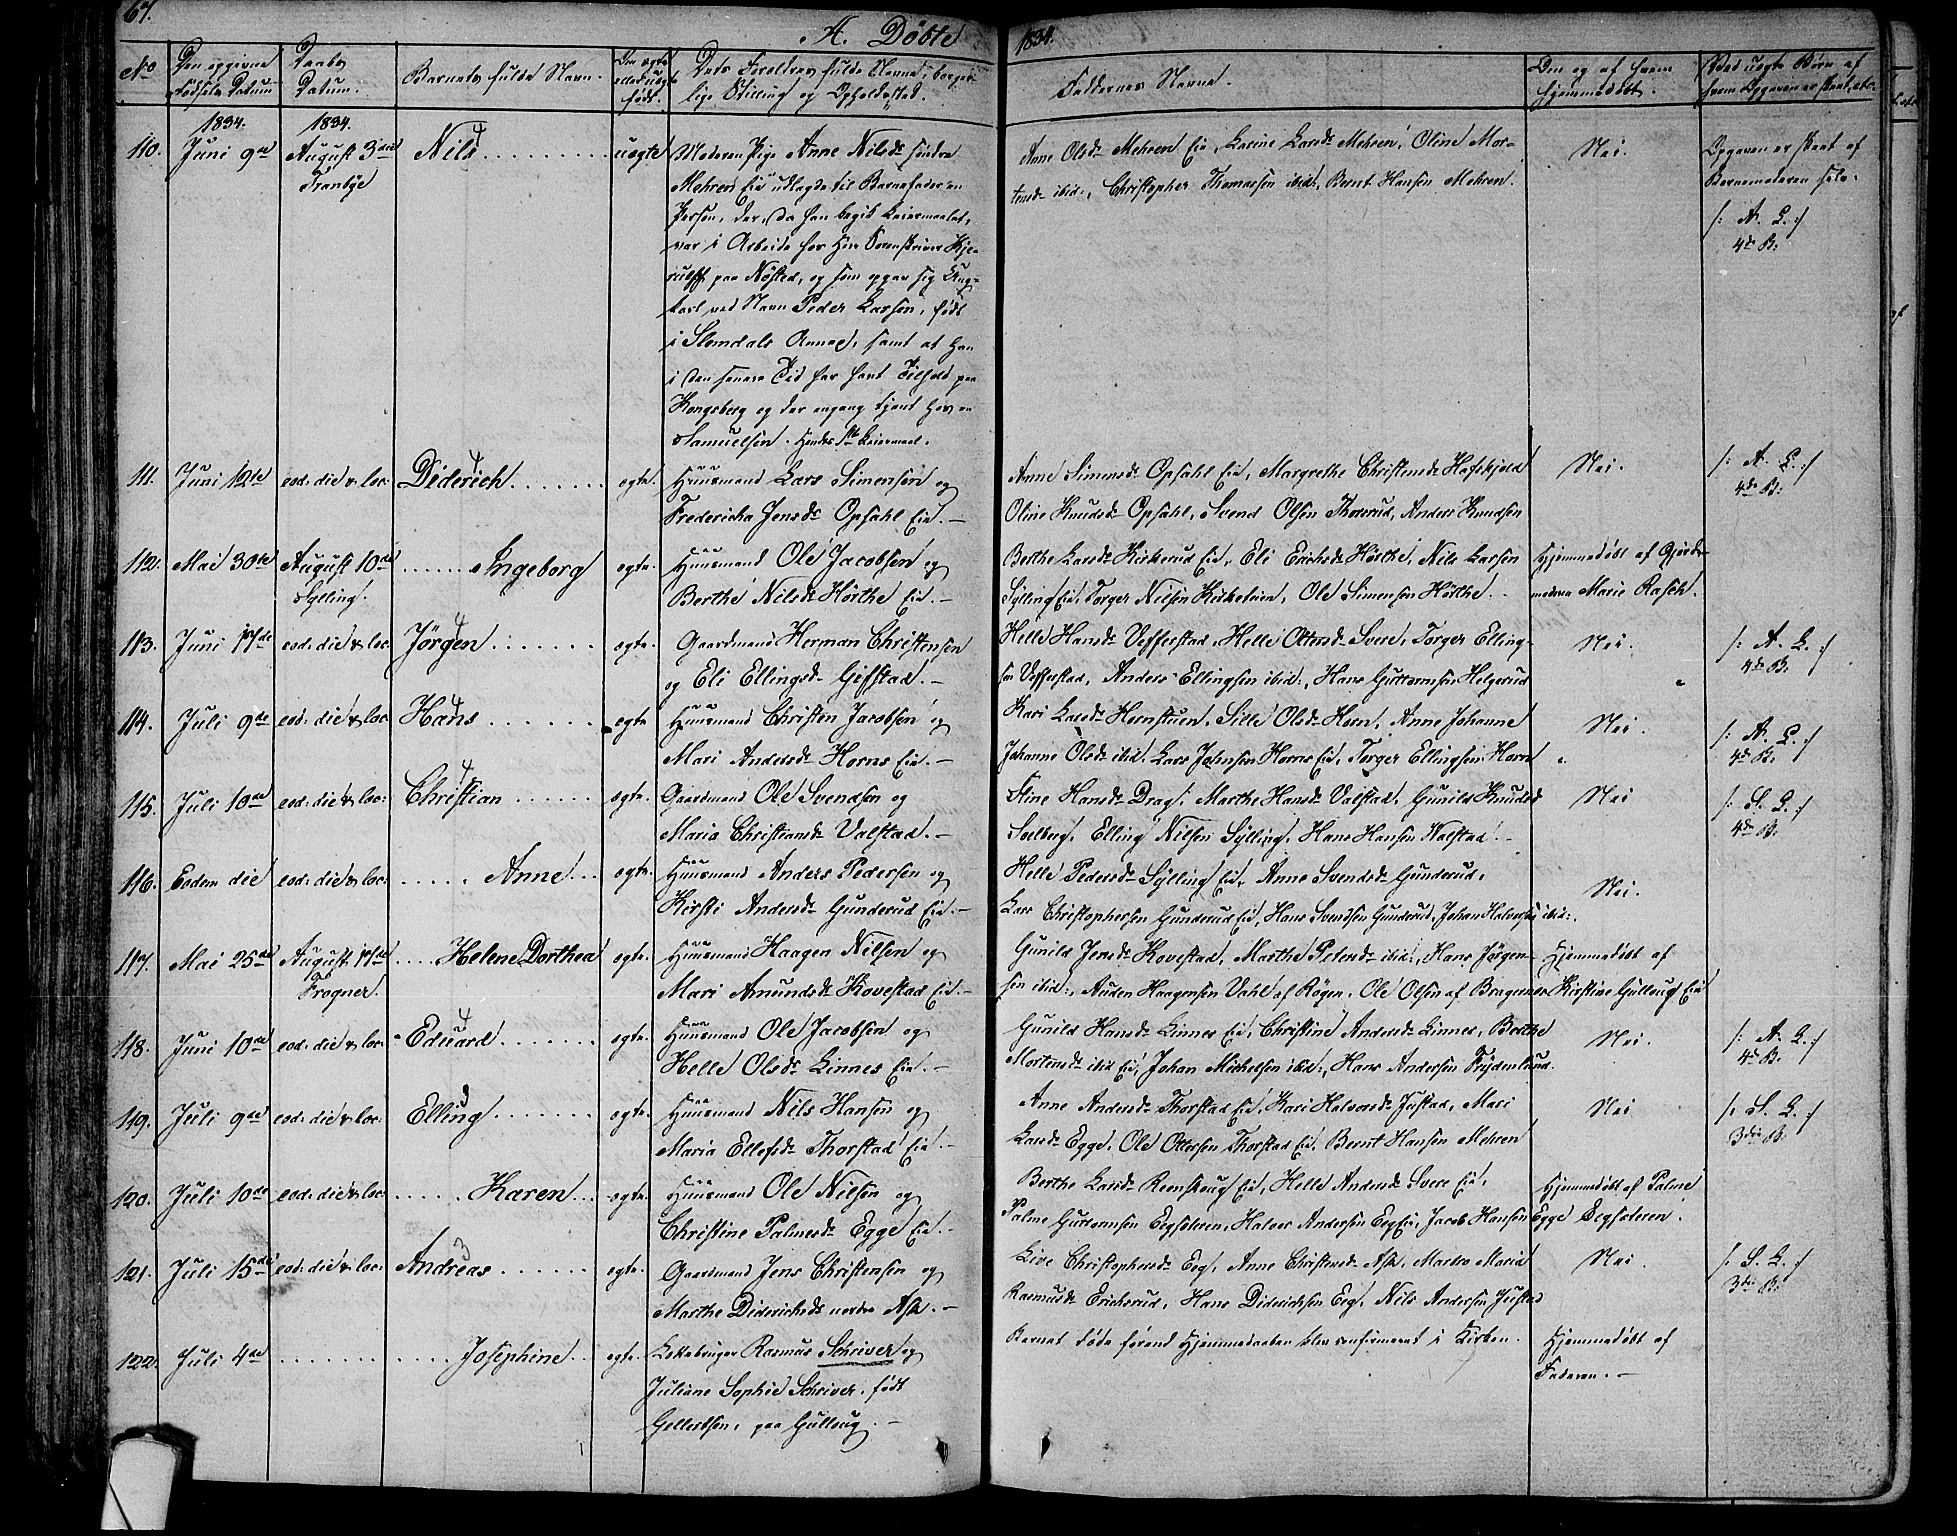 67.
A. Döbte
1834.
No
Den opgivne Fødsels Datum
Daabs Datum.
Barnets fulde Navn.
Om ægte eller uægte født.
Dets Forældres fulde Navne, borgerlige Stilling og Opholdssted.
Faddernes Navne.
Om og af hvem hjemmedöbt.
Ved uægte Börn af hvem Opgaven er skeet, etc.
1834.
1834.
110. Juni 9de August 3die Nils uægte Moderen Pige Anne Nilsdr söndre
Tranbye
Mehren Eie udlagde til Barnefader en
Person, der, da han begik Leiermaalet,
var i Arbeide hos Herr Sorenskriver Kje-
rulff paa Nösted, og som opgav sig Ung-
karl ved Navn Peder Larsen, født
i Slemdals Annex, samt at han
i den senere Tid har havt Tilhold paa
Kongsberg og der engang tjent hos en
Samuelsen. Hendes Leiermaal.
Anne Olsdr Mehren Eie, Karine Larsdr Mehren, Oline Mor-
tensdr ibid:, Christopher Thomassen ibid:, Bernt Hansen Mehren.
Nei.
Opgaven er skeet af
Barnemoderen selv.
/: A. L. :/
4de B:
111. Juni 10de eod: die & loc: Diderich ægte. Huusmand Lars Simensen og
Fredericha Jensdr Opsahl Eie.
Anne Simensdr Opsahl Eie, Margrethe Christensdr Hafskjold
Oline Knudsdr Opsahl, Svend Olsen Thorsrud, Anders Knudsen
Nei.
/: A. L. :/
4de B:
112. Mai 30te August 10de Ingeborg ægte. Huusmand Ole Jacobsen og
Sylling.
Berthe Nilsdr Hörthe Eie.
Berthe Larsdr Kirkerud Eie, Eli Erichsdr Hörthe, Nils Larsen
Sylling Eie, Torger Nilsen Kirkestuen, Ole Simensen Hörthe.
Hjemmedöbt af Gjorde-
moderen Marie Rasch.
113. Juni 17de eod: die & loc: Jörgen ægte. Gaardmand Herman Christensen
og Eli Ellingsdr Gifstad.
Helle Hansdr Ufferstad, Helle Ottersdr Svere, Torger Elling-
sen Ufferstad, Anders Ellingsen ibid:, Hans Guttormsen Helgerud
Nei.
/: A. L. :/
4de B:
114. Juli 9de eod: die & loc: Hans ægte Huusmand Christen Jacobsen og
Mari Andersdr Horns Eie.
Kari Larsdr Hornstuen, Sille Olsdr Horn, Anne Johanne
Johanne Olsdr ibid. Lars Johnsen Horns Eie, Torger Ellingsen Horn
Nei.
/: A. L. :/
4de B.
115. Juli 10de eod: die & loc: Christian ægte. Gaardmand Ole Svendsen og
Maria Christiansdr Valstad.
Stine Hansdr Drag, Marthe Hansdr Valstad, Gunild Knudsdr
Solberg, Elling Nilsen Sylling, Hans Hansen Valstad
Nei
/: S. L. :/
4de B:
116. Eodem die eod: die & loc: Anne ægte. Huusmand Anders Pedersen og
Kirsti Andersdr Gunderud Eie.
Helle Pedersdr Sylling Eie, Anne Svendsdr Gunderud,
Lars Christophersen Gunderud Eie, Hans Svendsen Gunderud, Johan Halvorsen ibid:.
Nei.
117. Mai 25de August 17de Helene Dorthea ægte. Huusmand Haagen Nilsen og
Frogner.
Mari Amundsdr Kovestad Eie.
Gunild Jensdr Kovestad, Marthe Petersdr ibid:, Hans Jörgen-
sen ibid:, Auden Haagensen Vahl af Røgen, Ole Olsen af Bragernes
Hjemmedöbt af
Kirstine Gulloug Eie
118. Juni 10de eod: die & loc: Eduard ægte. Huusmand Ole Jacobsen og
Helle Olsdr Linnes Eie.
Gunild Hansdr Linnes Eie, Christine Andersdr Linnes, Berthe
Mortensdr ibid Eie, Johan Michelsen ibid:, Hans Andersen Frydenlund.
Nei.
/: A. L. :/
4de B.
119. Juli 9de eod: die & loc: Elling ægte. Huusmand Nils Hansen og
Maria Ellefsdr Thorstad Eie.
Anne Andersdr Thorstad Eie, Kari Halvorsdr Justad, Mari
Larsdr Egge, Ole Ottersen Thorstad Eie, Bernt Hansen Mehren
Nei
/: S. L. :/
3die B:
120. Juli 10de eod: die & loc: Karen ægte. Huusmand Ole Nilsen og
Christine Palmesdr Egge Eie.
Berthe Larsdr Reenskoug Eie, Helle Andersdr Svere Eie,
Palme Guttormsen Eegsæteren, Halvor Andersen Eeg Eie, Jacob Hansen Egge
Hjemmedöbt af Palme
Eegsæteren.
121. Juli 15de eod: die & loc: Andreas ægte. Gaardmand Jens Christensen og
Marthe Diderichsdr nordre Ask.
Live Christophersdr Eeg, Anne Christensdr Ask, Maren Maria
Rasmusdr Erichsrud, Hans Diderichsen Eeg, Nils Andersen Justad
Nei.
/: S. L. :/
3die B:
122. Juli 4de Josephine ægte. Rasmus Schriver og
Juliane Sophie Schriver, født
Gellertsen, paa Gulloug.
Barnet døde førend Hjemmedaaben blev confirmeret i Kirken.
Hjemmedöbt af
Faderen.